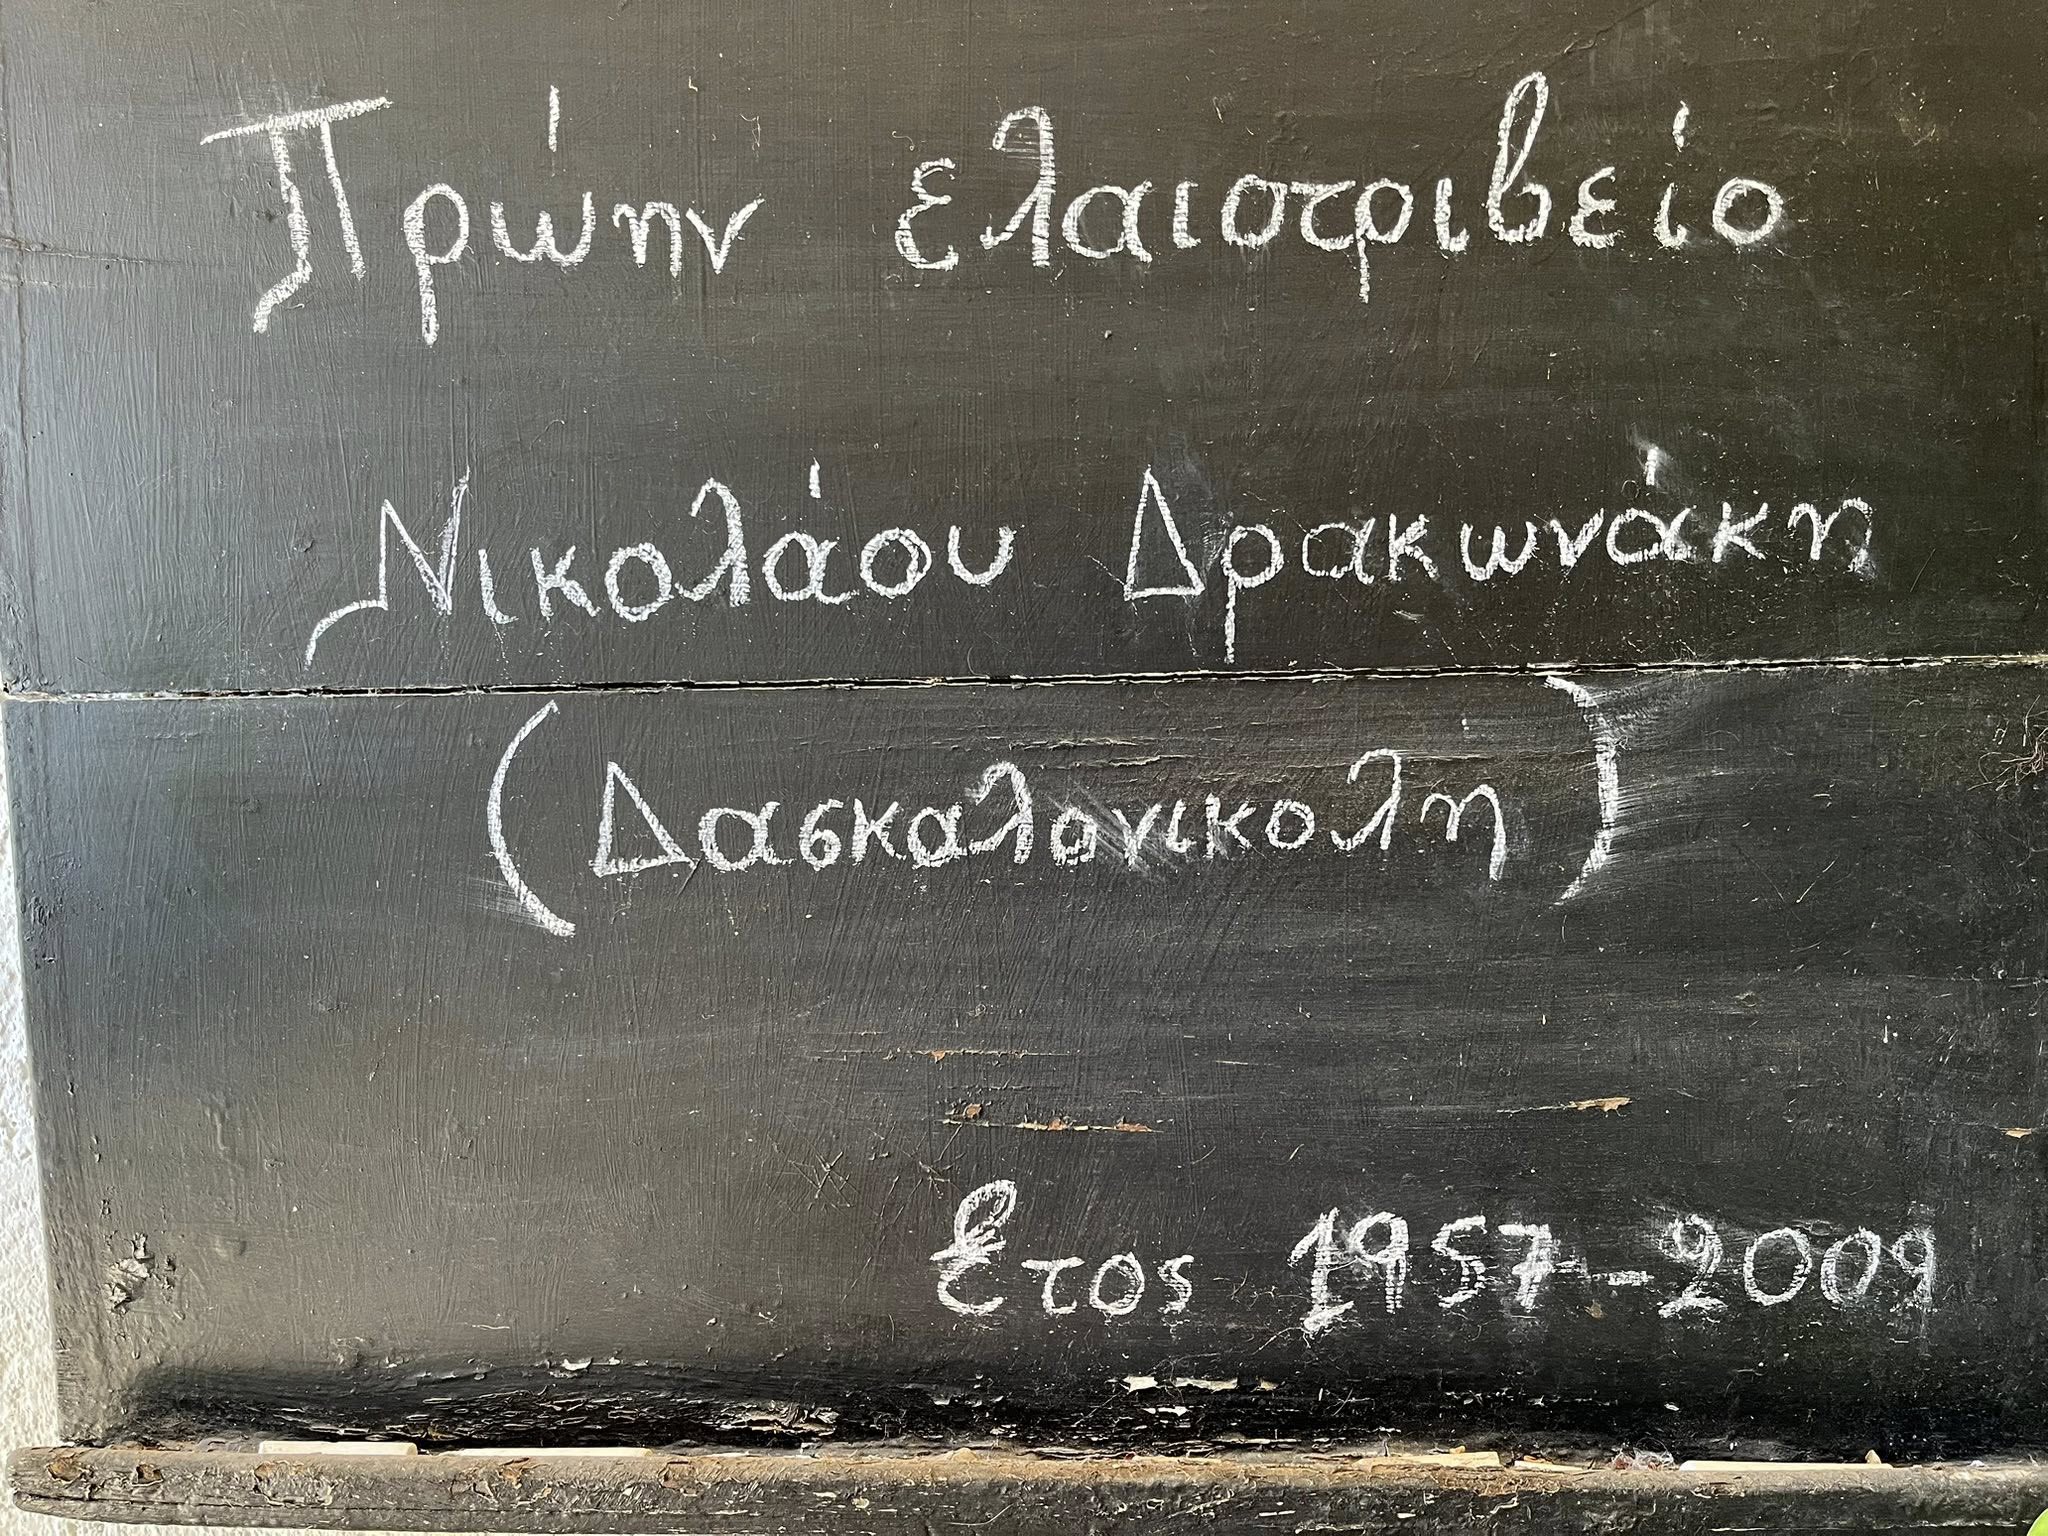 Πρώην ελαιοτριβείο
Νικολάου Δρακωνάκη
(Δασκαλονικολή)
Ετος 1957-2009